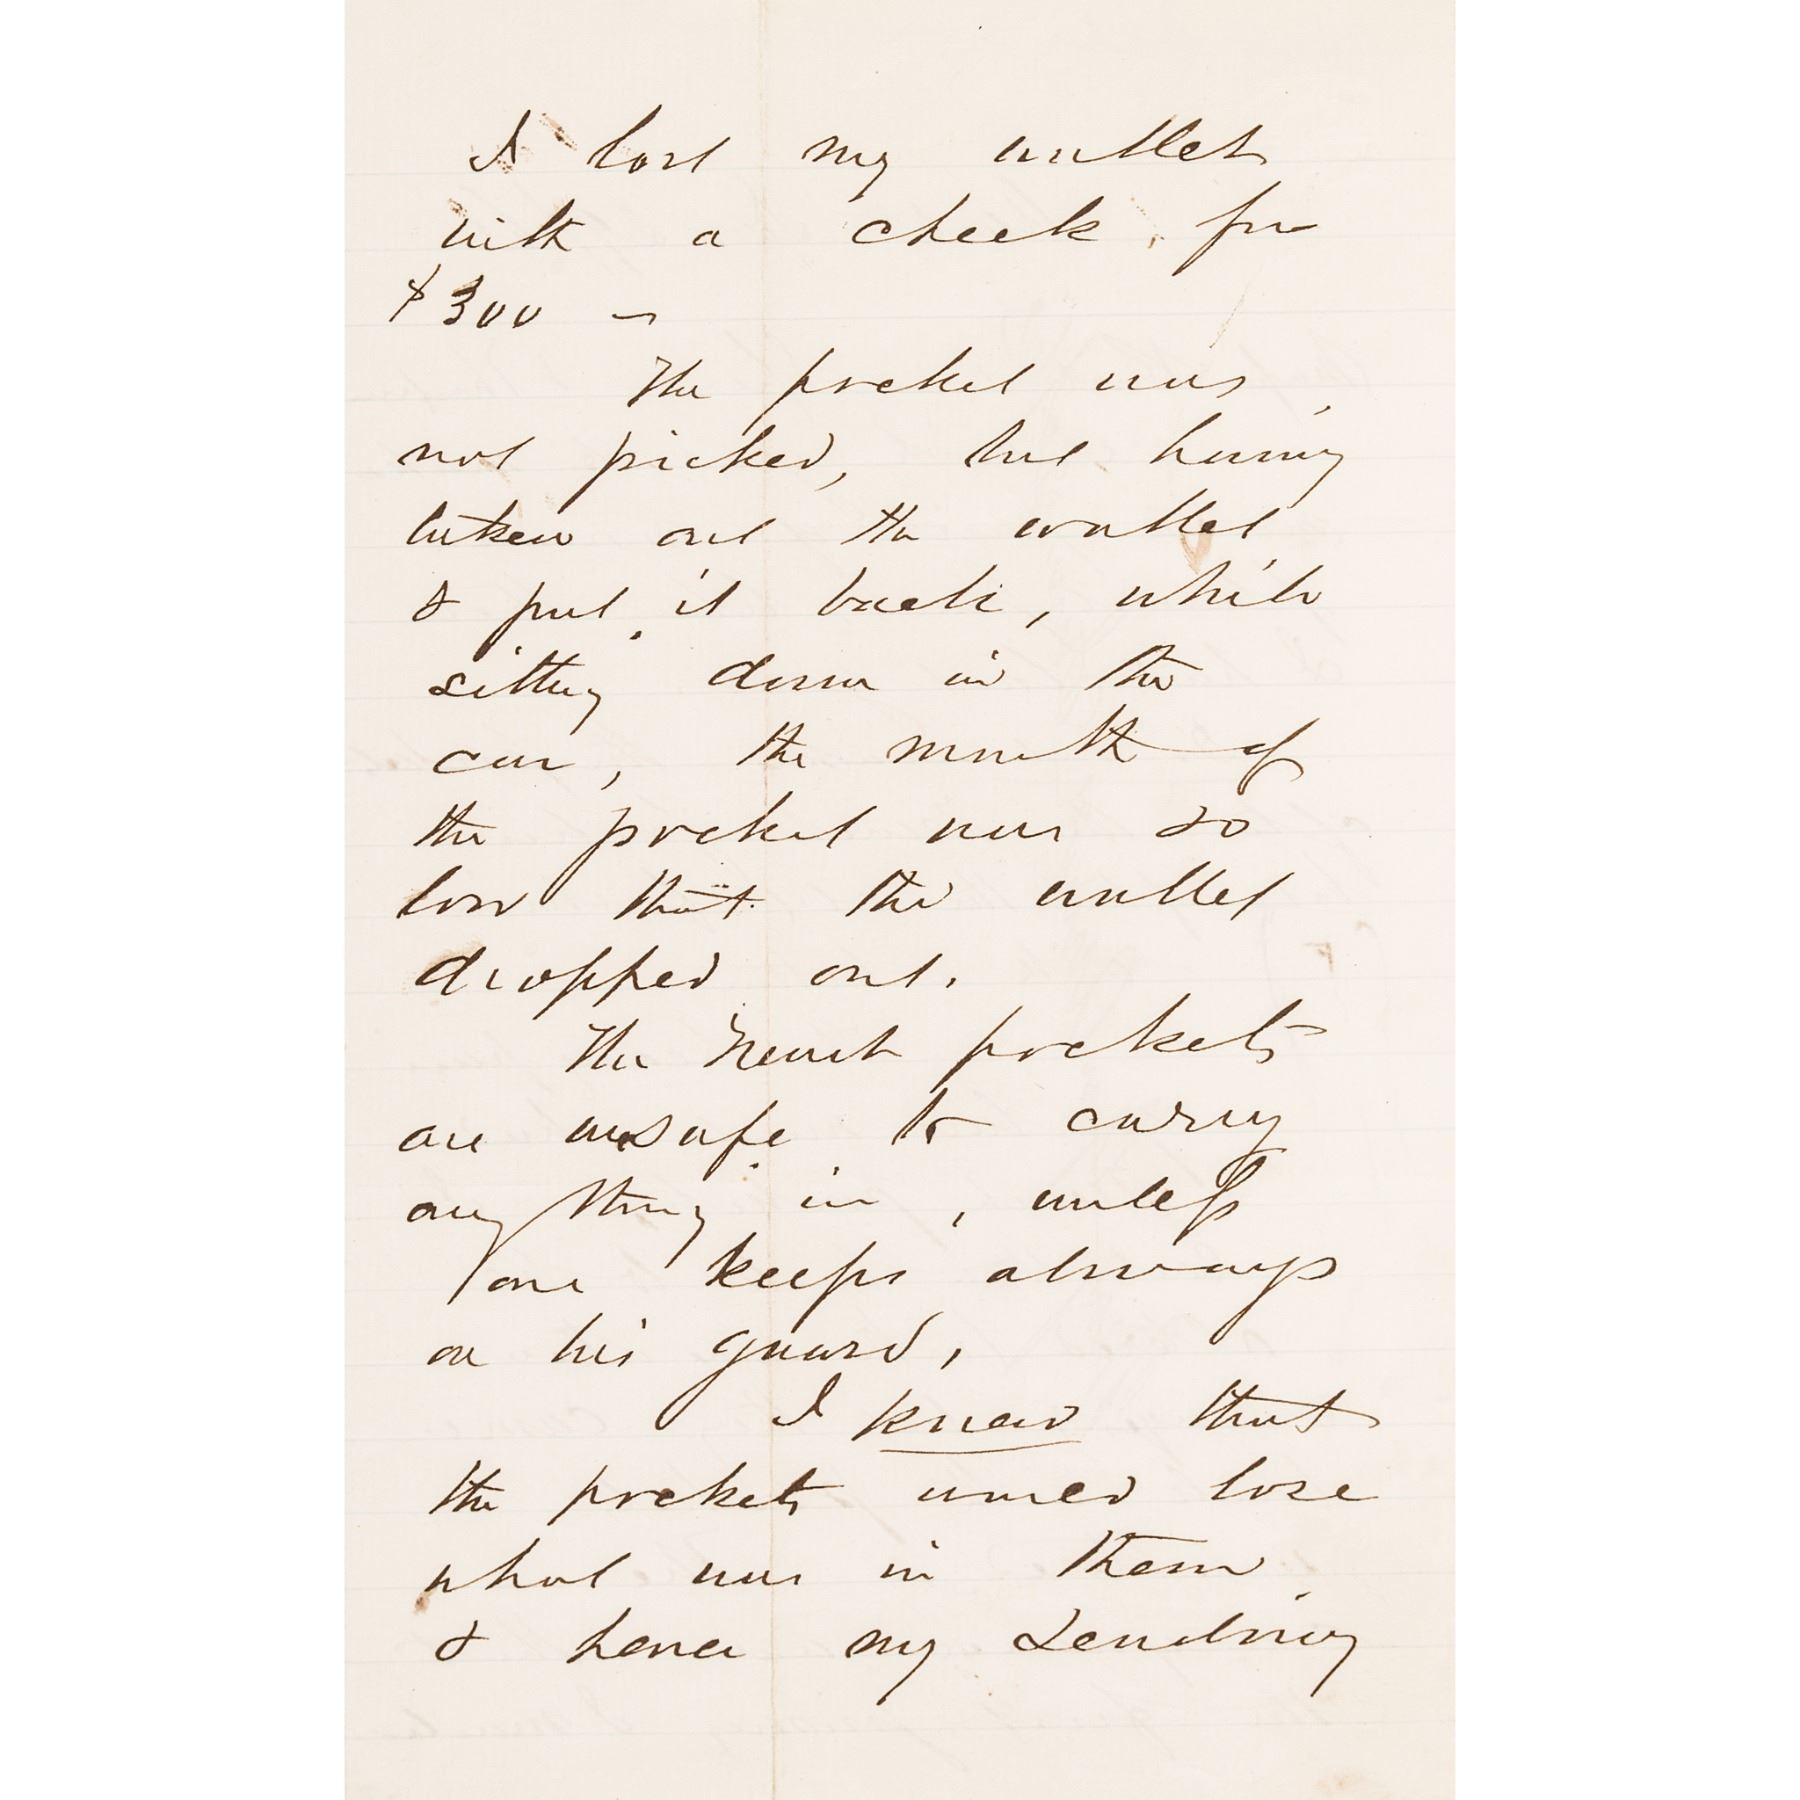 I lost my wallet
with a check for
$300 —
The pocket was
not picked, but having
taken out the wallet
& put it back, while
sitting down in the
car, the mouth of
the pocket was so
low that the wallet
dropped out.
The pockets
are unsafe to carry
anything in, unless
one keeps always
on his guard,
I knew that
the pockets would lose
what was in them
& hence my sending